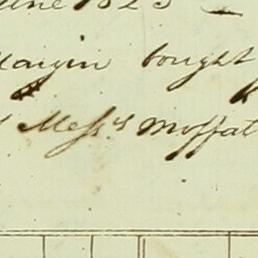 June 1823
Margin bought
Messrs Moffat